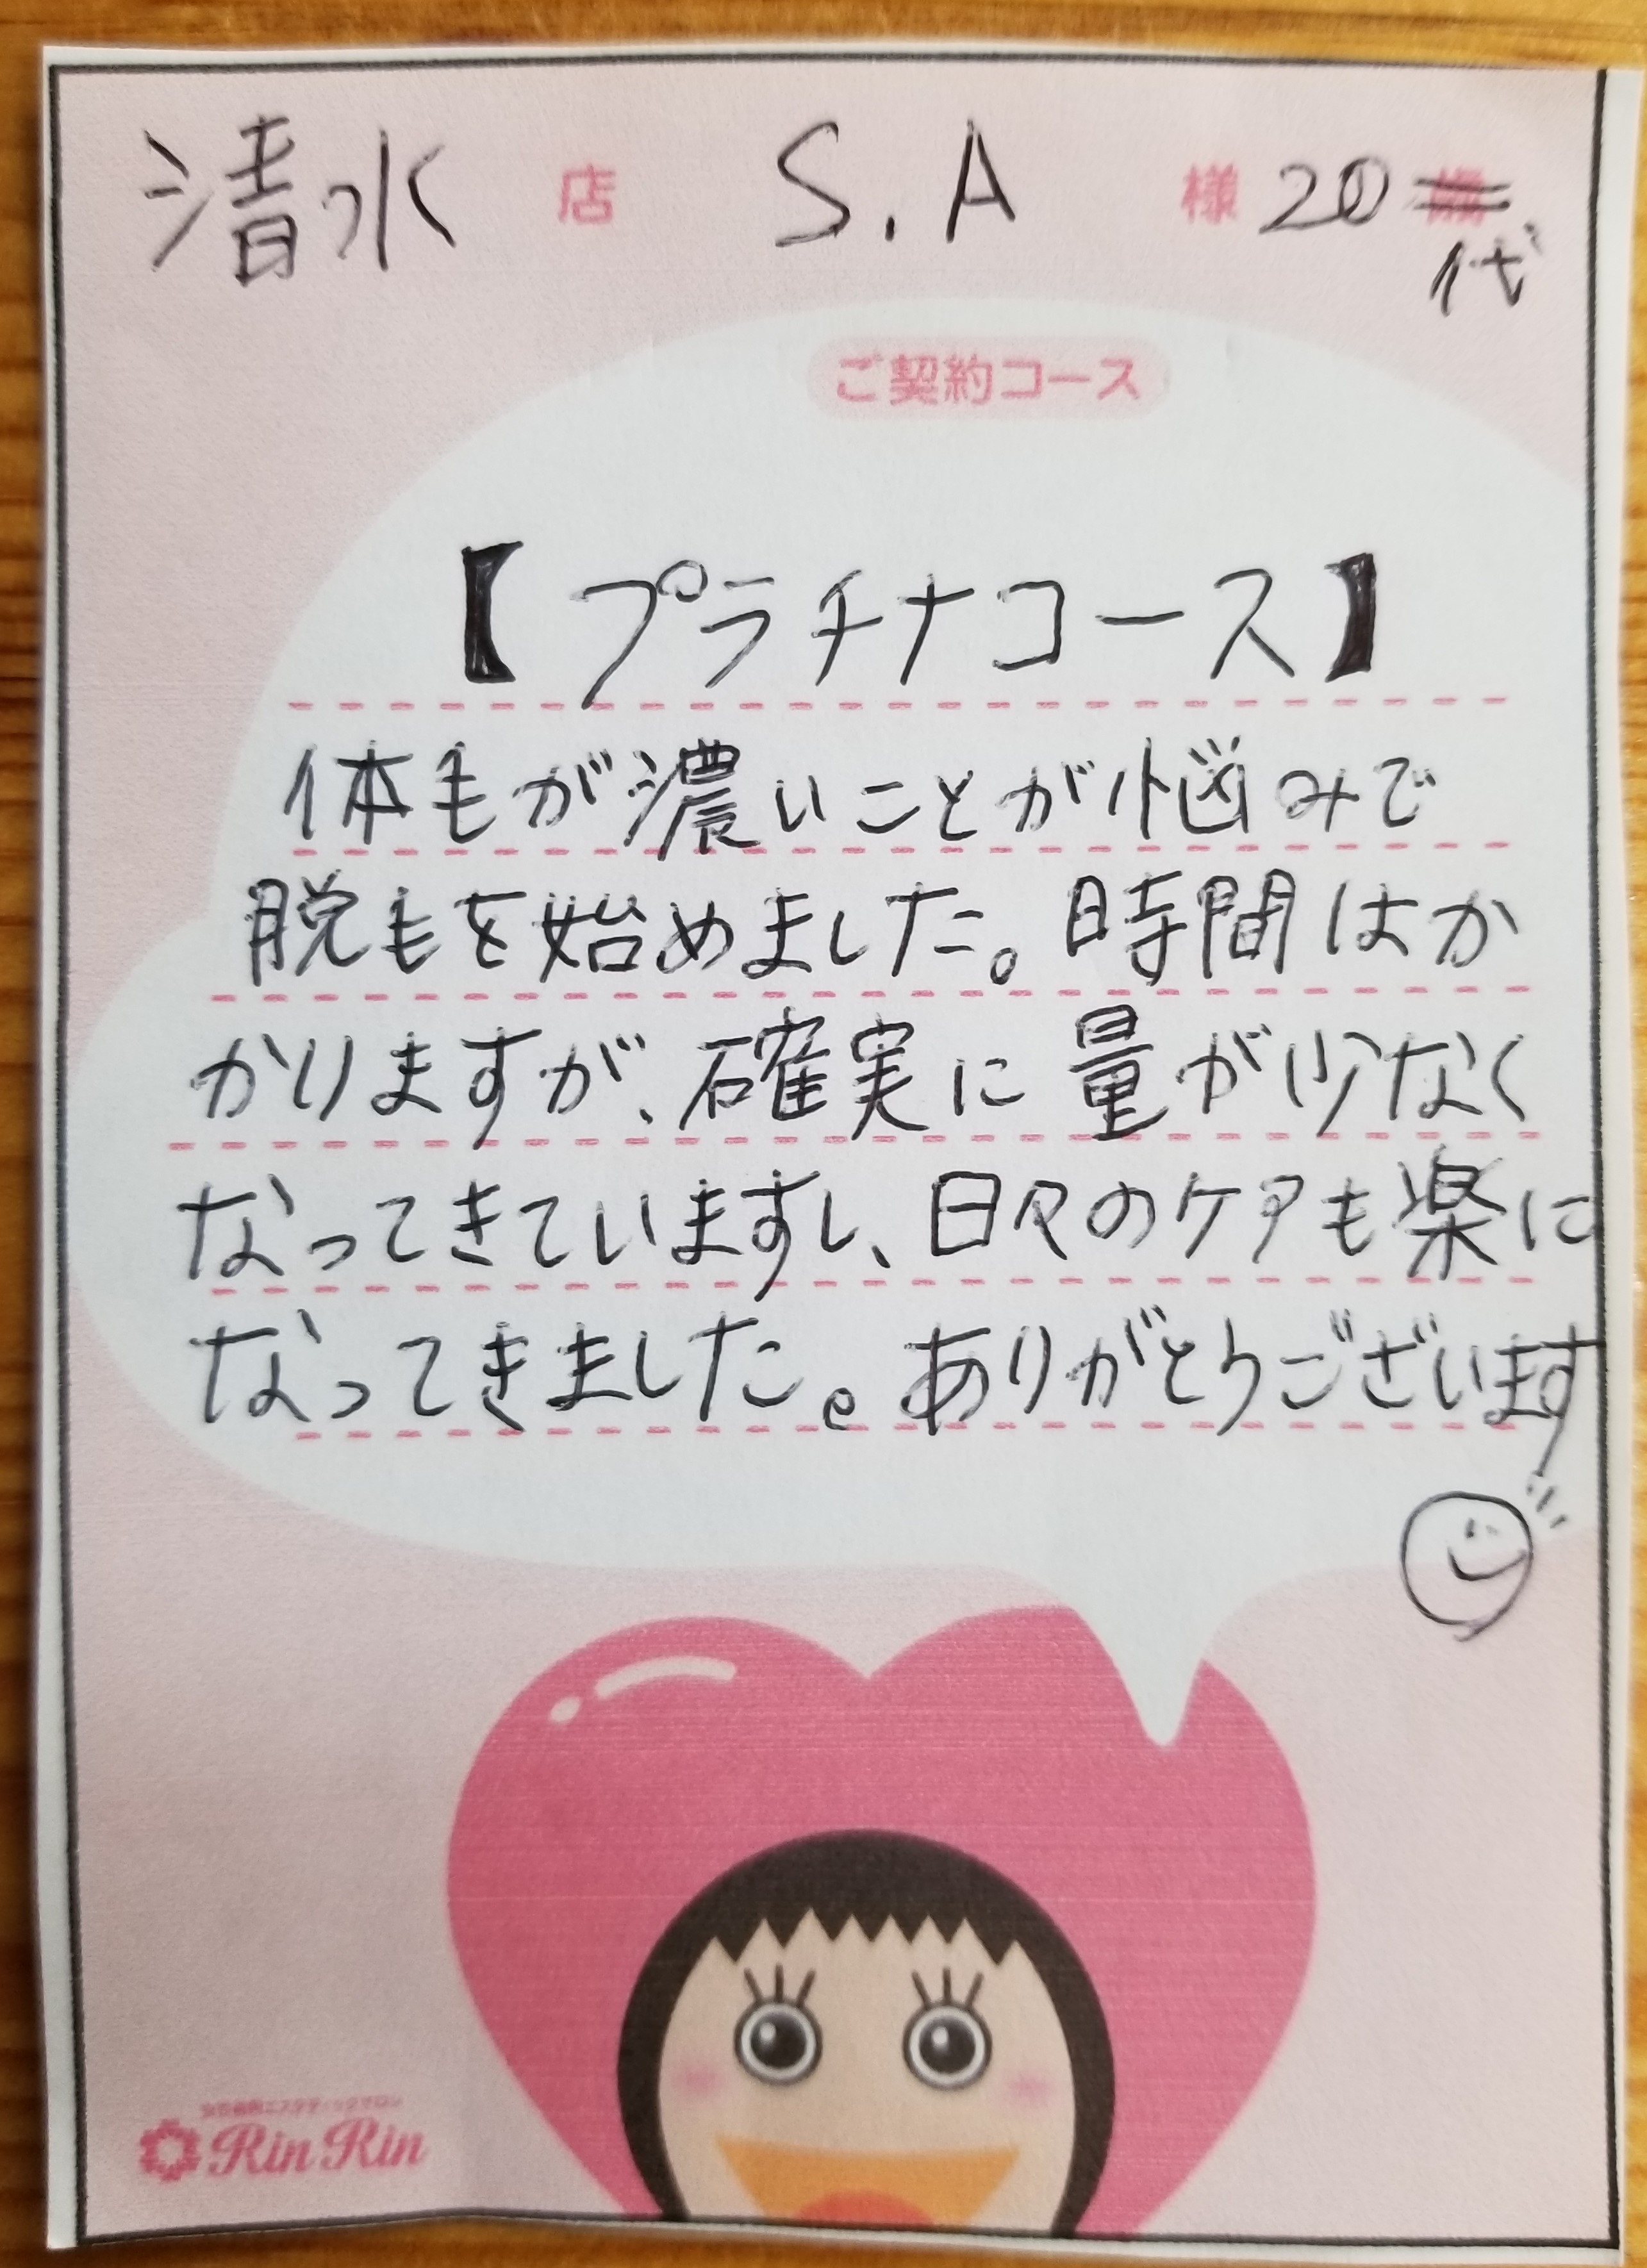 清水 店 S.A 様 20
代
ご契約コース
【プラチナコース】
体毛が濃いことが悩みで
脱毛を始めました。時間はか
かりますが、確実に量が少なく
なってきていますし、日々のケアも楽に
なってきました。ありがとうございます
Rin Rin